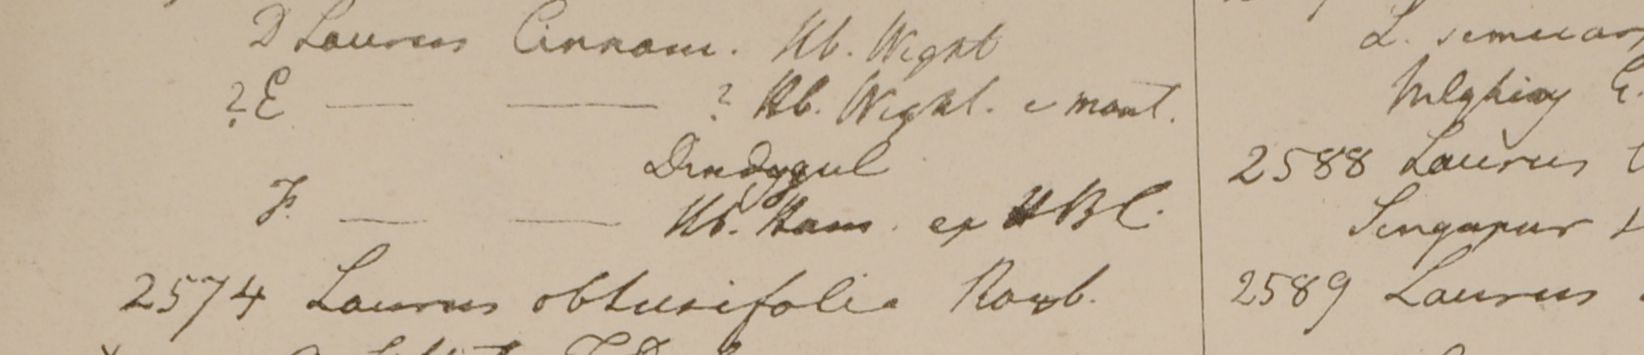 D Laurus Cinnam. Hb. Wight
? E — — ? Hb. Wight. e mont.
Dindygul
F. — — Hb. Ham. ex HBC.
2574 Laurus obtusifolia Roxb.
L. semecarp
G.
2588 Laurus
Singapur
2589 Laurus